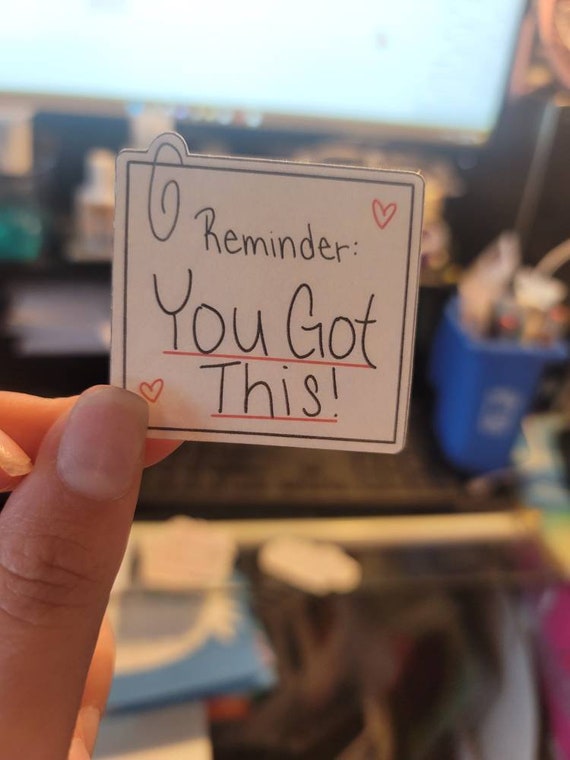 Reminder:
You Got
This!